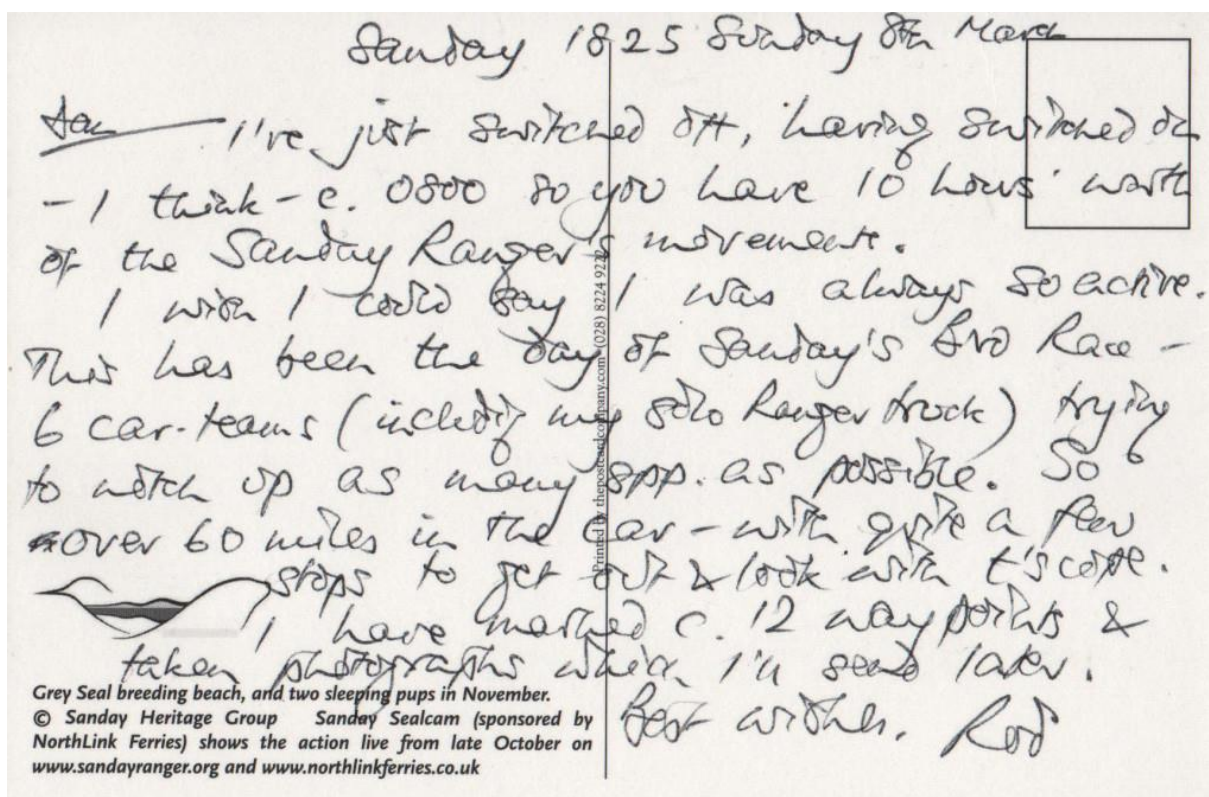 Sanday 1825 Sunday 8th March
I've just switched off, having switched on
- I think - c. 0800 so you have 10 hours' worth
of the Sanday Ranger's movements.
I wish I could say I was always so active.
This has been the day of Sanday's Bird Race -
6 car-teams (includg my solo Ranger truck) trying
to notch up as many spp. as possible. So
over 60 miles in the car - with quite a few
stops to get out & look with t'scope.
I have marked c. 12 way points &
taken photographs which I'll send later.
Best wishes. Rod
Grey Seal breeding beach, and two sleeping pups in November.
© Sanday Heritage Group Sanday Sealcam (sponsored by
NorthLink Ferries) shows the action live from late October on
www.sandayranger.org and www.northlinkferries.co.uk
Printed by thepostcardcompany.com (028) 8224 92